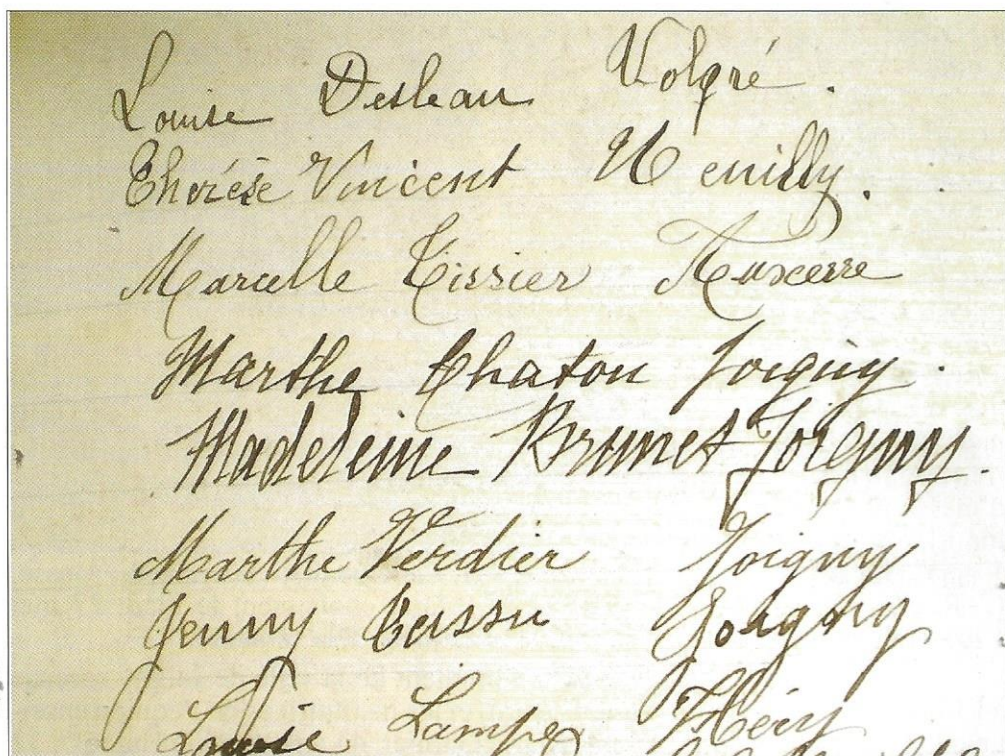 Louise Desleau Volgré.
Thérèse Vincent Neuilly.
Marcelle Tissier Auxerre
Marthe Chaton Joigny.
Madeleine Brunet Joigny.
Marthe Verdier Joigny
Jenny Joigny
Louise Lampe Héry